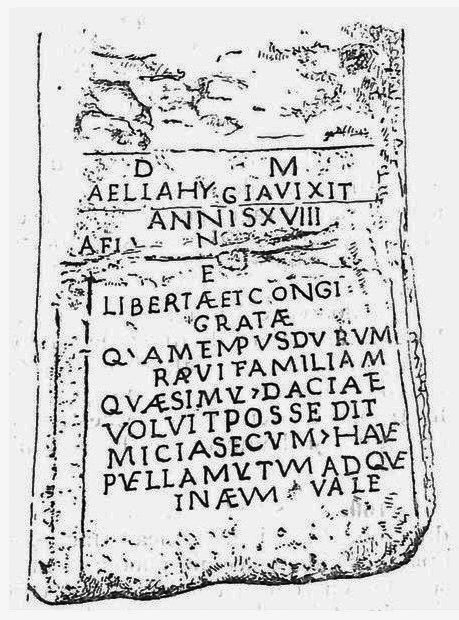 D M
AELIAHYGIAVIXIT
ANNISXVIII
AFI N
E
LIBERTÆETCONGI
GRATÆ
QVAMEMPUSDURUM
RAPVIFAMILIAM
QVÆSIMVL>DACIATE
VOLVITPOSSEDIT
MICIASECVM>HAVE
PVELLAMVLTVMADQVE
INÆVM VALE